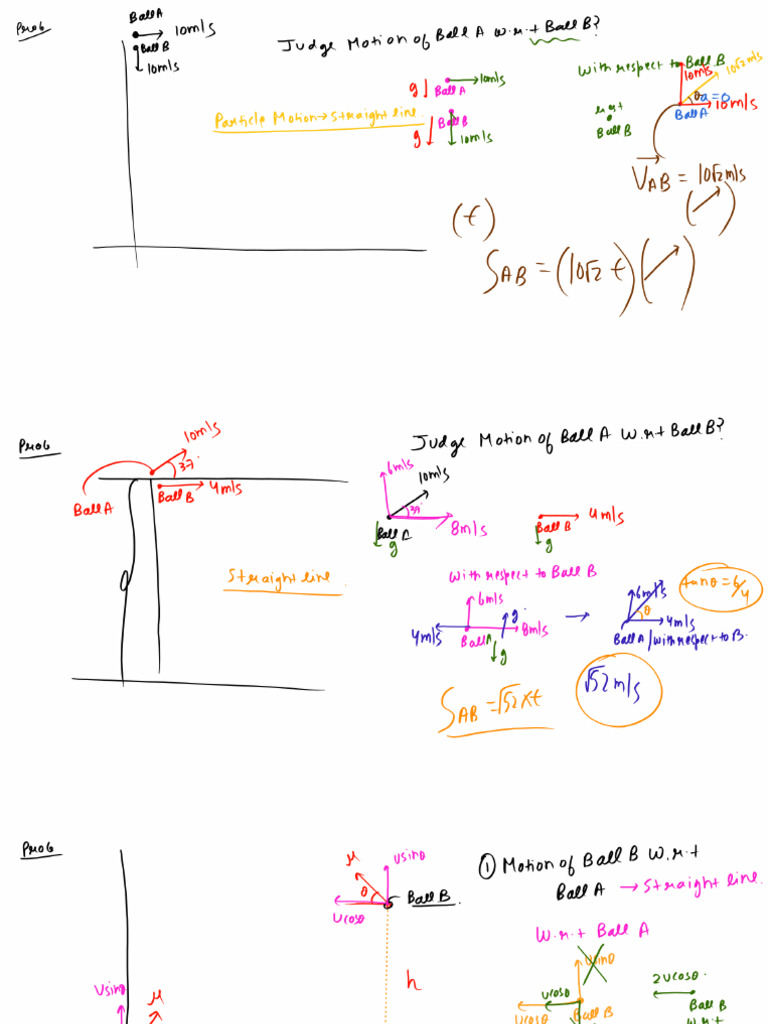 Prob
Ball A
10m/s
Ball B
10m/s
Judge Motion of Ball A w.r.t Ball B?
Particle Motion → Straight line
g
Ball A
10m/s
g
Ball B
10m/s
With respect to Ball B
10m/s
10√2 m/s
θ
a=0
10m/s
Ball A
rest
Ball B
V_AB = 10√2 m/s
(t)
S_AB = (10√2 t)
Prob
Judge Motion of Ball A w.r.t Ball B?
10m/s
37°
Ball A
Ball B
4m/s
Straight line
6m/s
10m/s
37°
8m/s
Ball A
g
4m/s
Ball B
g
With respect to Ball B
6m/s
g
4m/s
Ball A
8m/s
g
6m/s
θ
4m/s
Ball A/with respect to B.
tanθ = 6/4
√52 m/s
S_AB = √52 × t
Prob
usinθ
u
u
usinθ
θ
ucosθ
Ball B
h
① Motion of Ball B w.r.t
Ball A → Straight line
W.r.t Ball A
usinθ
ucosθ
ucosθ
Ball B
2ucosθ
Ball B
w.r.t